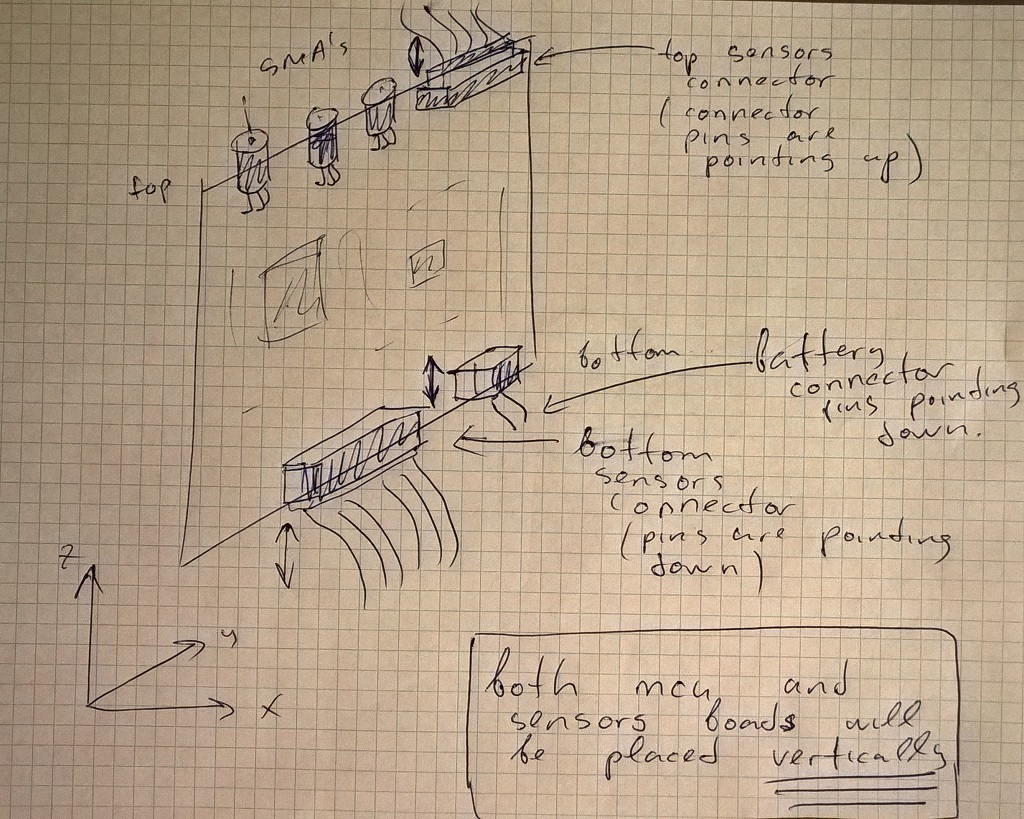 SMA's
top sensors
connector
(connector
pins are
pointing up)
top
bottom
battery
connector
pins pointing
down.
bottom
sensors
connector
(pins are pointing
down)
z
y
x
both mcu and
sensors boads will
be placed vertically